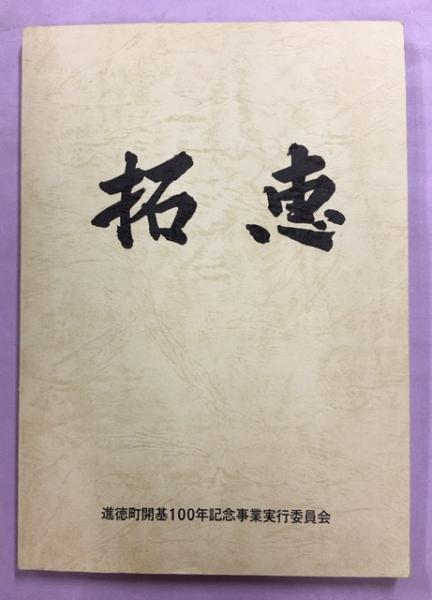 拓恵
進徳町開基100年記念事業実行委員会